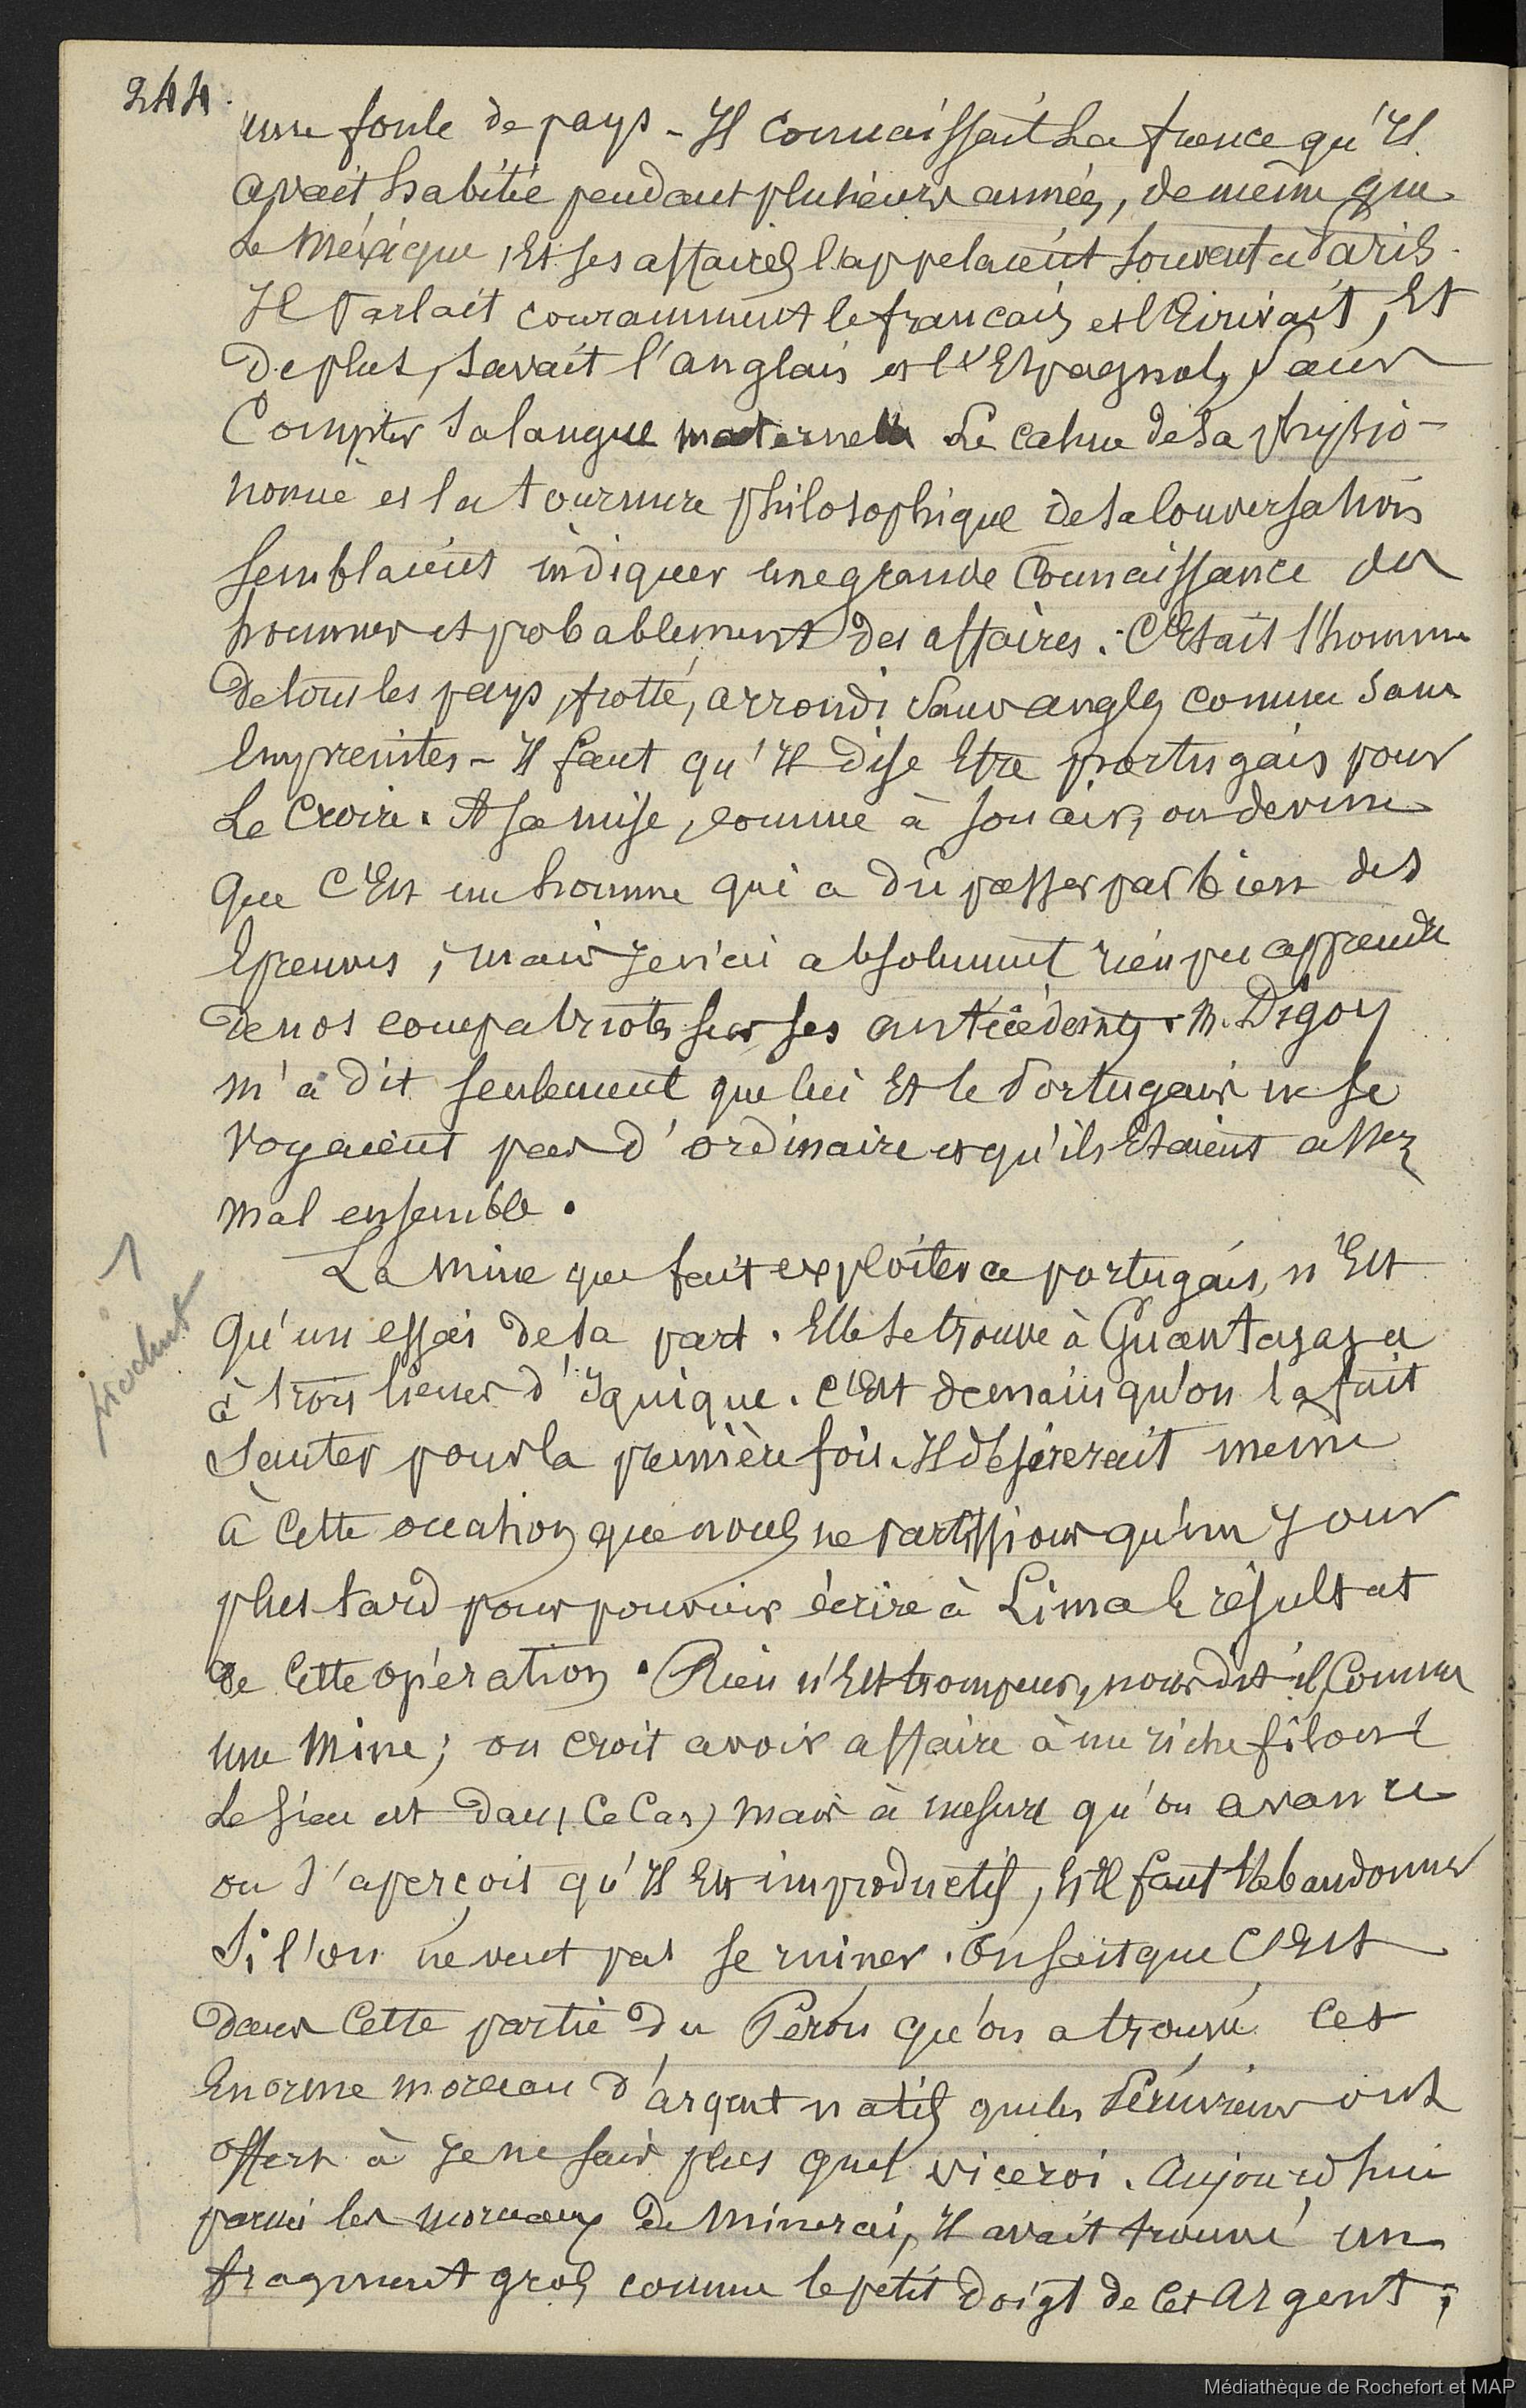 244.
une foule de pays - Il connaissait la france qu'Il
avait habitée pendant plusieurs années, de même que
le Méxique, Et ses affaires l'appelaient souvent à Paris.
Il Parlait couramment le francais et l'Ecrivait, Et
de plus, savait l'anglais et l'Espagnol, Sans
Compter sa langue maternelle. Le calme de sa physio-
nomie et la tournure philosophique de sa Conversation
semblaient indiquer une grande Connaissance des
hommes et probablement des affaires. C'Etait l'homme
de tous les pays, frotté, arrondi sans angles comme sans
Empreintes - Il faut qu'Il dise Etre portugais pour
le Croire. A sa mise, comme à son air, on devine
que C'Est un homme qui a dû passer par bien des
Epreuves; mais Je n'ai absolument rien pu apprendre
de nos compatriotes sur ses antécédents. M. Digoy
m'a dit seulement que lui Et le Portugais ne se
voyaient pas d'ordinaire et qu'ils Etaient assez
mal ensemble.
La mine que fait exploiter ce portugais, n'Est
qu'un essai de sa part. Elle se trouve à Guantajaya
à trois lieues d'Iquique. C'Est demain qu'on la fait
sauter pour la première fois. Il désirerait meme
à Cette occation que nous ne Partissions qu'un Jour
plus tard pour pouvoir écrire à Lima le résultat
de Cette opération. Rien n'Est trompeur, nous dit-il, Comme
une Mine; on croit avoir affaire à un riche filon
le sien est dans Ce Cas) mais à mesure qu'on avance
on s'aperçoit qu'Il Est improductif, Et Il faut l'abandonner
Si l'on ne veut pas se ruiner. On sait que C'Est
dans Cette partie du Pérou qu'on a trouvé Cet
Enorme morceau d'argent natif que les Péruviens ont
offert à Je ne sais plus quel viceroi. Aujourd'hui
parmi les morceaux de Minerai, Il avait trouvé un
fragment gros comme le petit doigt de Cet Argent;